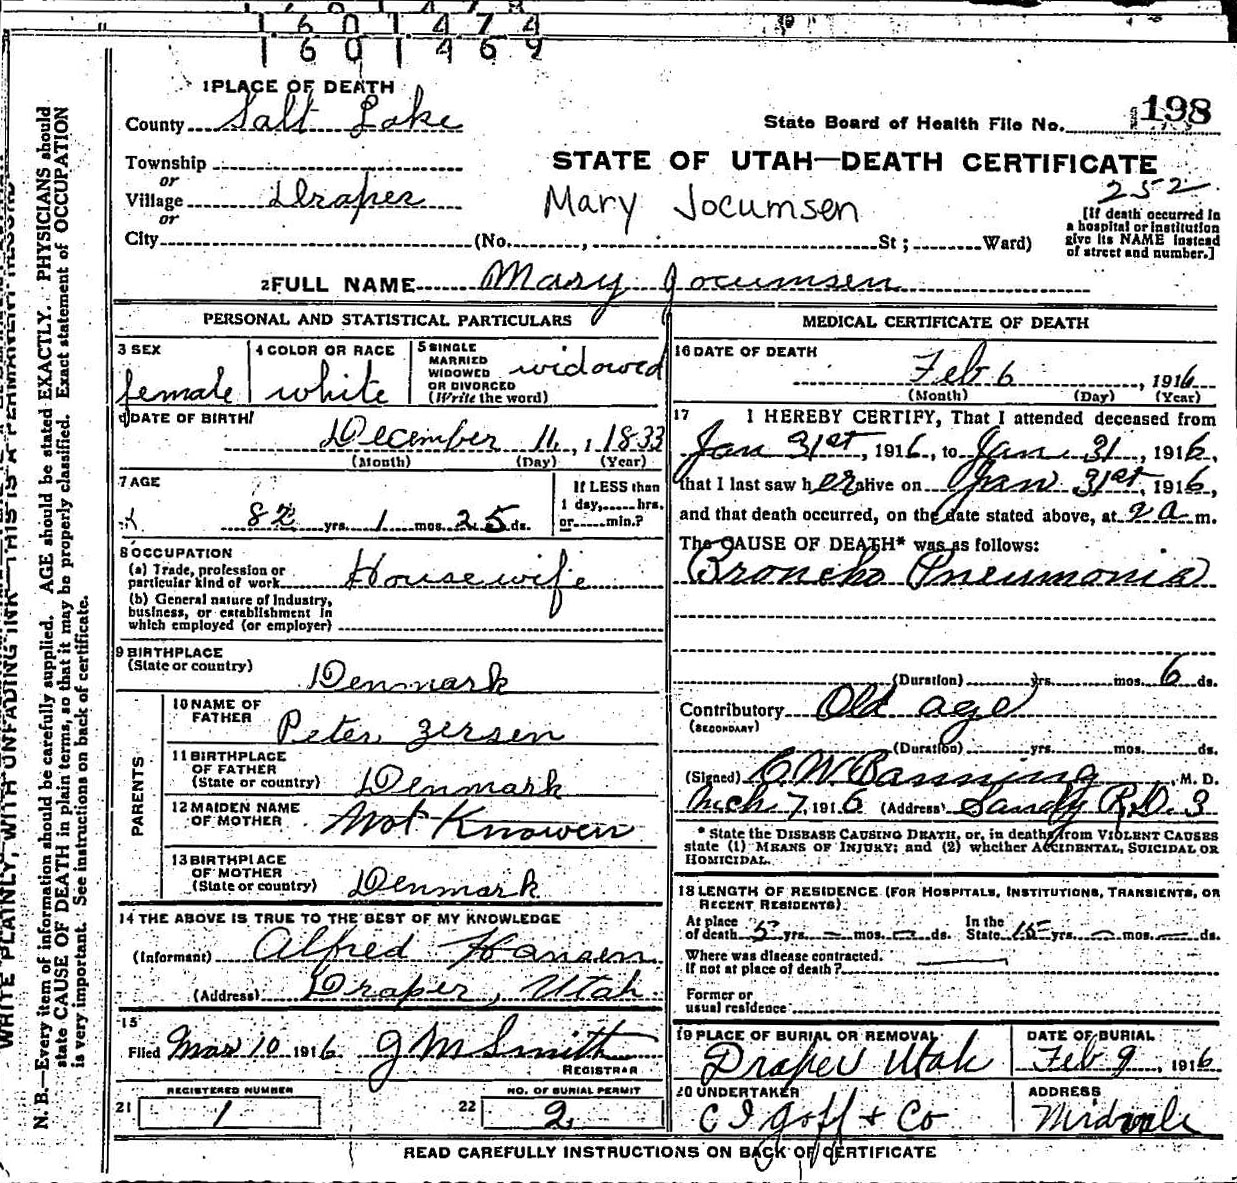 1 6 0 1 4 7 4
1 6 0 1 4 6 9
1 PLACE OF DEATH
County Salt Lake
State Board of Health File No. 198
Township
or
Village Draper
or
City (No. , St ; Ward)
STATE OF UTAH—DEATH CERTIFICATE
252
Mary Jocumsen
[If death occurred in
a hospital or institution
give its NAME instead
of street and number.]
2 FULL NAME Mary Jocumsen
PERSONAL AND STATISTICAL PARTICULARS
3 SEX
female
4 COLOR OR RACE
white
5 SINGLE
MARRIED
WIDOWED
OR DIVORCED
(Write the word)
widowed
6 DATE OF BIRTH
December 11, 1833
(Month) (Day) (Year)
7 AGE
82 yrs. 1 mos. 25 ds.
If LESS than
1 day, hrs.
or min.?
8 OCCUPATION
(a) Trade, profession or
particular kind of work Housewife
(b) General nature of Industry,
business, or establishment in
which employed (or employer)
9 BIRTHPLACE
(State or country)
Denmark
PARENTS
10 NAME OF
FATHER
Peter Zersen
11 BIRTHPLACE
OF FATHER
(State or country)
Denmark
12 MAIDEN NAME
OF MOTHER
Not Knowen
13 BIRTHPLACE
OF MOTHER
(State or country)
Denmark
14 THE ABOVE IS TRUE TO THE BEST OF MY KNOWLEDGE
(Informant) Alfred Hansen
(Address) Draper, Utah
15
Filed Mar 10 1916 J M Smith
REGISTRAR
REGISTERED NUMBER
21 1
NO. OF BURIAL PERMIT
22 2
MEDICAL CERTIFICATE OF DEATH
16 DATE OF DEATH
Feb 6, 1916
(Month) (Day) (Year)
17 I HEREBY CERTIFY, That I attended deceased from
Jan 31st, 1916, to Jan 31, 1916,
that I last saw her alive on Jan 31st, 1916,
and that death occurred, on the date stated above, at 9 a m.
The CAUSE OF DEATH* was as follows:
Broncho Pneumonia
(Duration) yrs. mos. 6 ds.
Contributory Old age
(SECONDARY)
(Duration) yrs. mos. ds.
(Signed) E W Banning, M. D.
Mch 7, 1916 (Address) Sandy R.D. 3
* State the DISEASE CAUSING DEATH, or, in deaths from VIOLENT CAUSES
state (1) MEANS OF INJURY; and (2) whether ACCIDENTAL, SUICIDAL OR
HOMICIDAL.
18 LENGTH OF RESIDENCE (FOR HOSPITALS, INSTITUTIONS, TRANSIENTS, OR
RECENT RESIDENTS).
At place
of death 5 yrs. – mos. – ds.
In the
State 15 yrs. – mos. – ds.
Where was disease contracted.
If not at place of death?
Former or
usual residence
19 PLACE OF BURIAL OR REMOVAL
Draper Utah
DATE OF BURIAL
Feb 9, 1916
20 UNDERTAKER
C I Goff & Co
ADDRESS
Midvale
READ CAREFULLY INSTRUCTIONS ON BACK OF CERTIFICATE
WRITE PLAINLY, WITH UNFADING INK—THIS IS A PERMANENT RECORD
N. B.—Every item of information should be carefully supplied. AGE should be stated EXACTLY. PHYSICIANS should
state CAUSE OF DEATH in plain terms, so that it may be properly classified. Exact statement of OCCUPATION
is very important. See instructions on back of certificate.